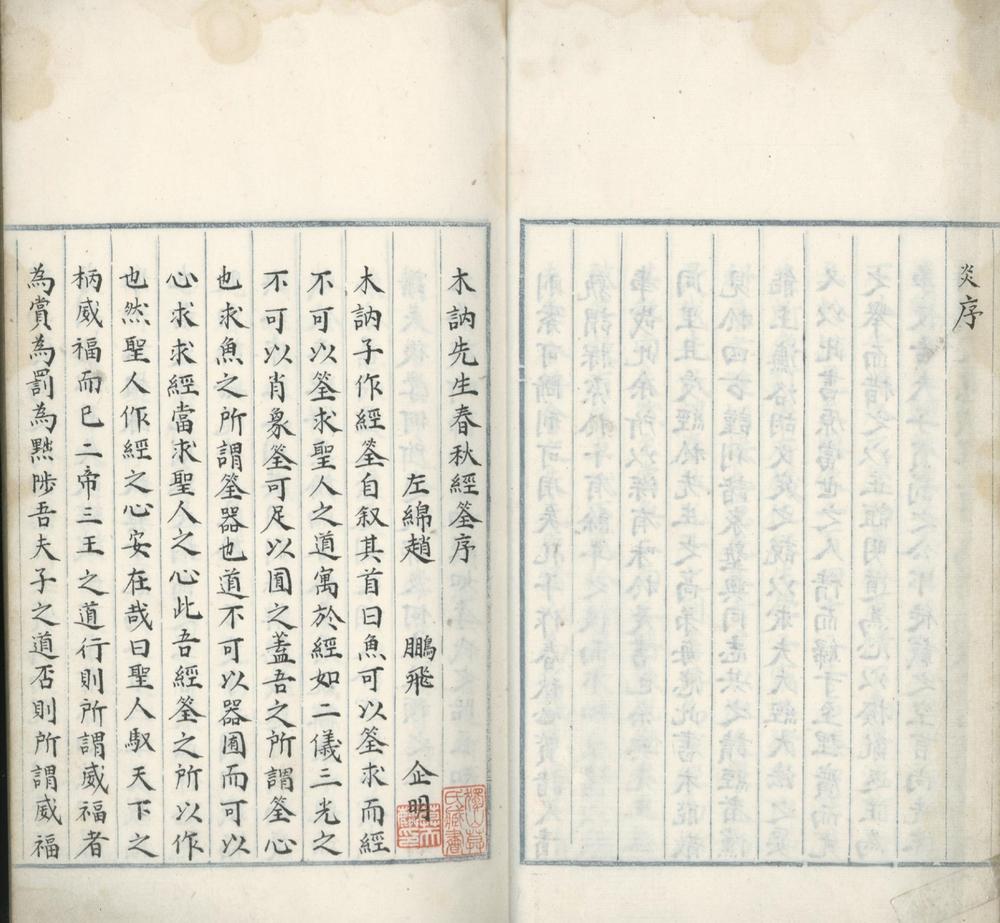 炎序
木訥先生春秋經筌序
左綿趙 鵬飛 企明
木訥子作經筌自叙其首曰魚可以筌求而經
不可以筌求聖人之道寓於經如二儀三光之
不可以肖象筌可足以囿之蓋吾之所謂筌心
也求魚之所謂筌器也道不可以器囿而可以
心求求經當求聖人之心此吾經筌之所以作
也然聖人作經之心安在哉曰聖人馭天下之
柄威福而已二帝三王之道行則所謂威福者
為賞為罰為黜陟吾夫子之道否則所謂威福